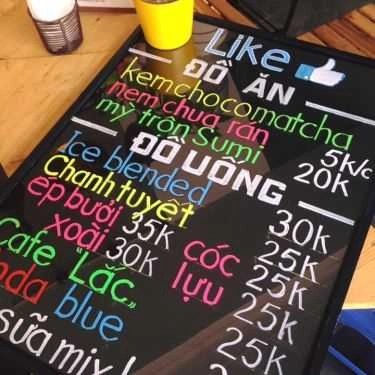 Like
ĐỒ ĂN
kem choco matcha
nem chua rán 5k/c
mỳ trộn Sumi 20K
ĐỒ UỐNG
Ice blended 30K
Chanh tuyết 25K
ép bưởi 35K cóc 25K
xoài 30K lựu 25K
Cafe "Lắc" 25K
nda blue 25K
sữa mix